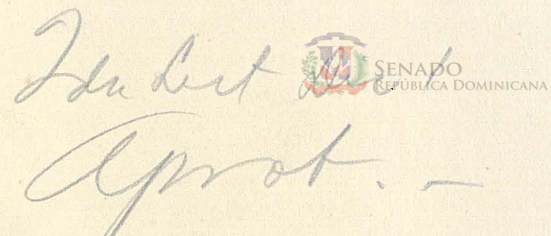 2da Lect
SENADO
REPÚBLICA DOMINICANA
Aprob. -